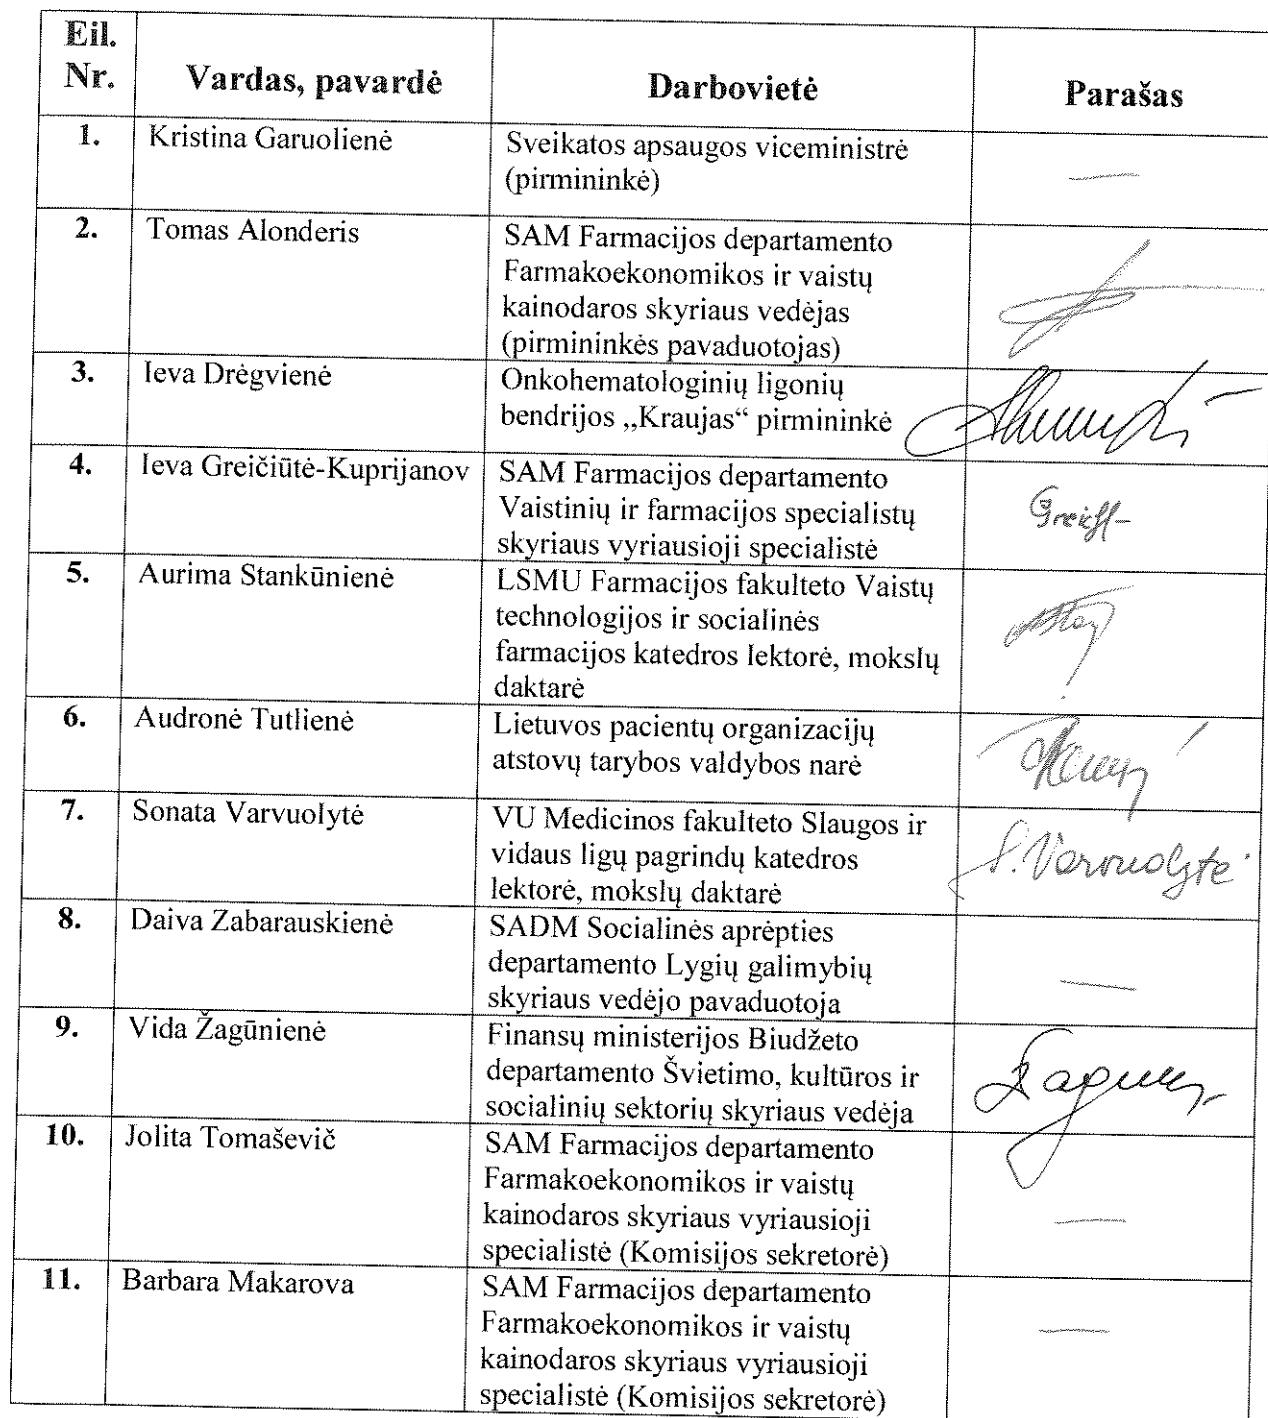 Eil. Nr.
Vardas, pavardė
Darbovietė
Parašas
1.
Kristina Garuolienė
Sveikatos apsaugos viceministrė
(pirmininkė)
—
2.
Tomas Alonderis
SAM Farmacijos departamento
Farmakoekonomikos ir vaistų
kainodaros skyriaus vedėjas
(pirmininkės pavaduotojas)
3.
Ieva Drėgvienė
Onkohematologinių ligonių
bendrijos „Kraujas“ pirmininkė
4.
Ieva Greičiūtė-Kuprijanov
SAM Farmacijos departamento
Vaistinių ir farmacijos specialistų
skyriaus vyriausioji specialistė
5.
Aurima Stankūnienė
LSMU Farmacijos fakulteto Vaistų
technologijos ir socialinės
farmacijos katedros lektorė, mokslų
daktarė
6.
Audronė Tutlienė
Lietuvos pacientų organizacijų
atstovų tarybos valdybos narė
7.
Sonata Varvuolytė
VU Medicinos fakulteto Slaugos ir
vidaus ligų pagrindų katedros
lektorė, mokslų daktarė
S. Varvuolytė
8.
Daiva Zabarauskienė
SADM Socialinės aprėpties
departamento Lygių galimybių
skyriaus vedėjo pavaduotoja
—
9.
Vida Žagūnienė
Finansų ministerijos Biudžeto
departamento Švietimo, kultūros ir
socialinių sektorių skyriaus vedėja
10.
Jolita Tomaševič
SAM Farmacijos departamento
Farmakoekonomikos ir vaistų
kainodaros skyriaus vyriausioji
specialistė (Komisijos sekretorė)
—
11.
Barbara Makarova
SAM Farmacijos departamento
Farmakoekonomikos ir vaistų
kainodaros skyriaus vyriausioji
specialistė (Komisijos sekretorė)
—